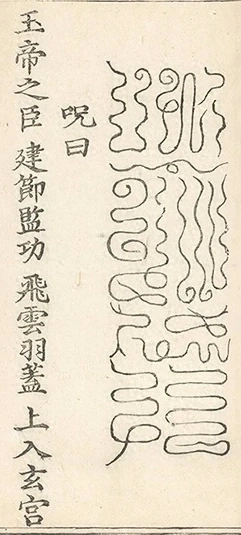 咒曰
玉帝之臣 建節監功 飛雲羽蓋 上入玄宮